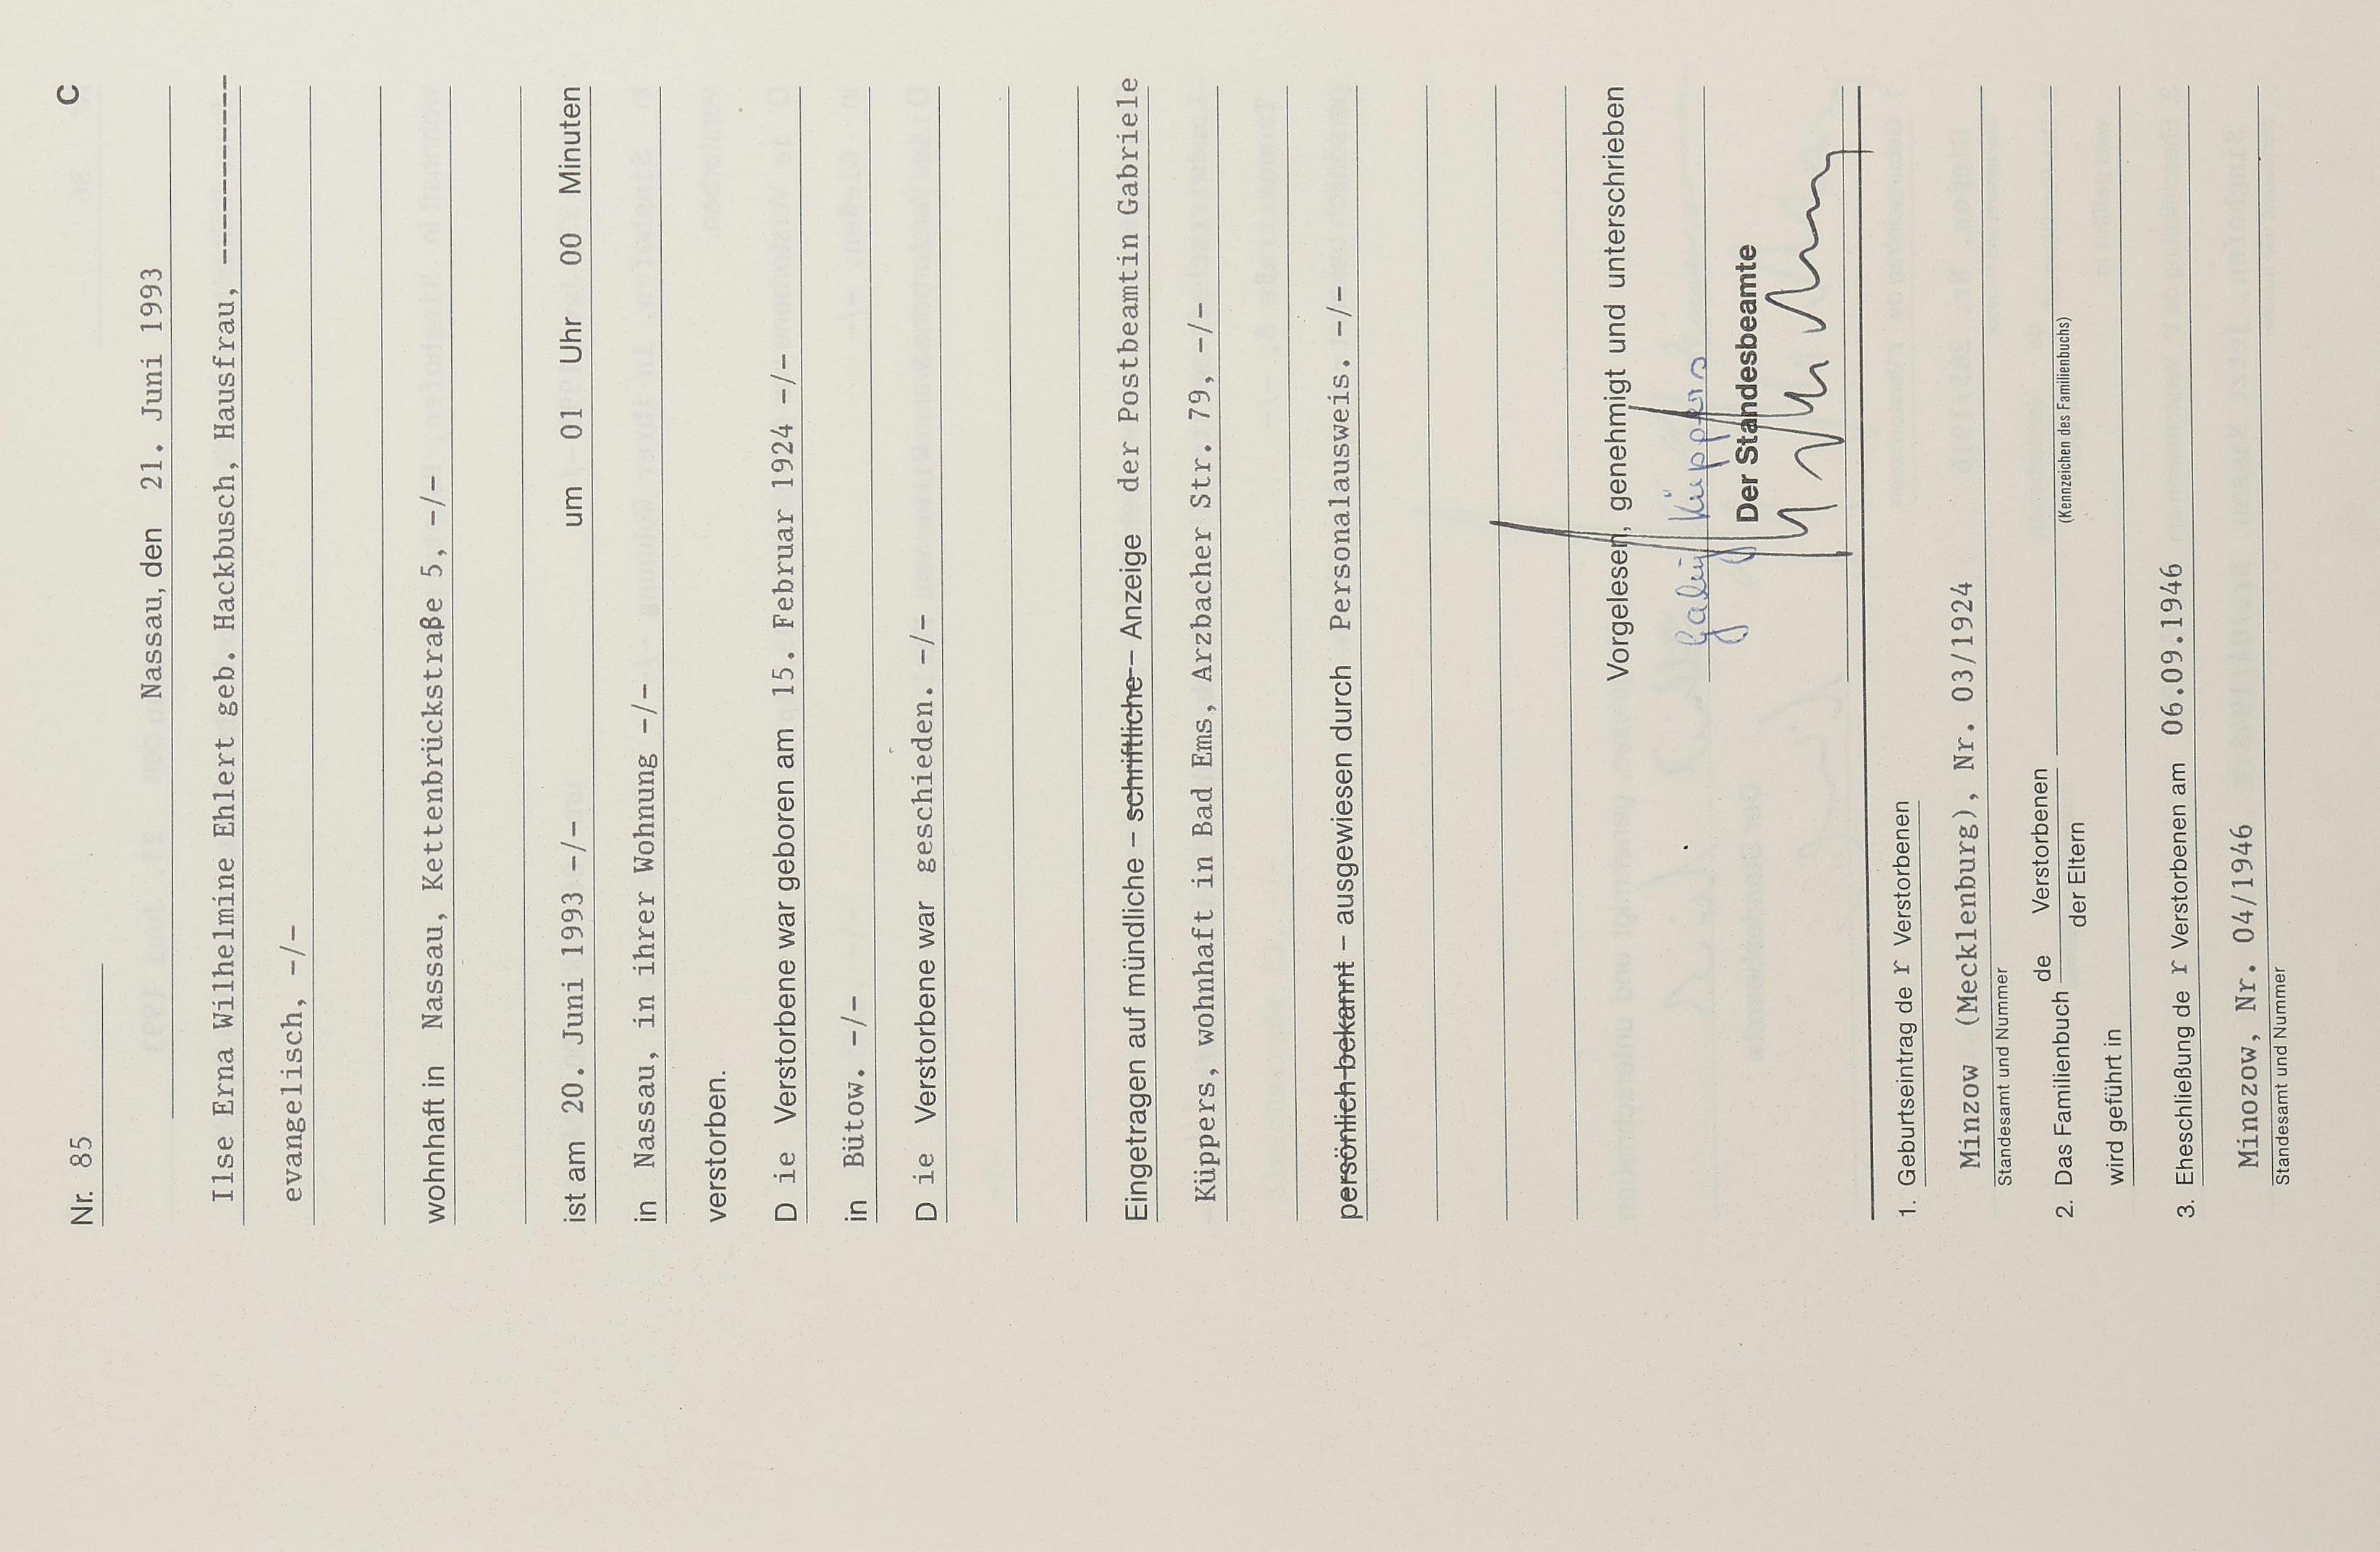 Nr. 85 C
Nassau, den 21. Juni 1993
Ilse Erna Wilhelmine Ehlert geb. Hackbusch, Hausfrau, --------------
evangelisch, -/-
wohnhaft in Nassau, Kettenbrückstraße 5, -/-
ist am 20. Juni 1993 -/- um 01 Uhr 00 Minuten
in Nassau, in ihrer Wohnung -/-
verstorben.
D ie Verstorbene war geboren am 15. Februar 1924 -/-
in Bütow. -/-
D ie Verstorbene war geschieden. -/-
Eingetragen auf mündliche – schriftliche – Anzeige der Postbeamtin Gabriele
Küppers, wohnhaft in Bad Ems, Arzbacher Str. 79, -/-
persönlich bekannt – ausgewiesen durch Personalausweis. -/-
Vorgelesen, genehmigt und unterschrieben
Küppers
Der Standesbeamte
1. Geburtseintrag de r Verstorbenen
Minzow (Mecklenburg), Nr. 03/1924
Standesamt und Nummer
2. Das Familienbuch de Verstorbenen
der Eltern
(Kennzeichen des Familienbuchs)
wird geführt in
3. Eheschließung de r Verstorbenen am 06.09.1946
Minozow, Nr. 04/1946
Standesamt und Nummer